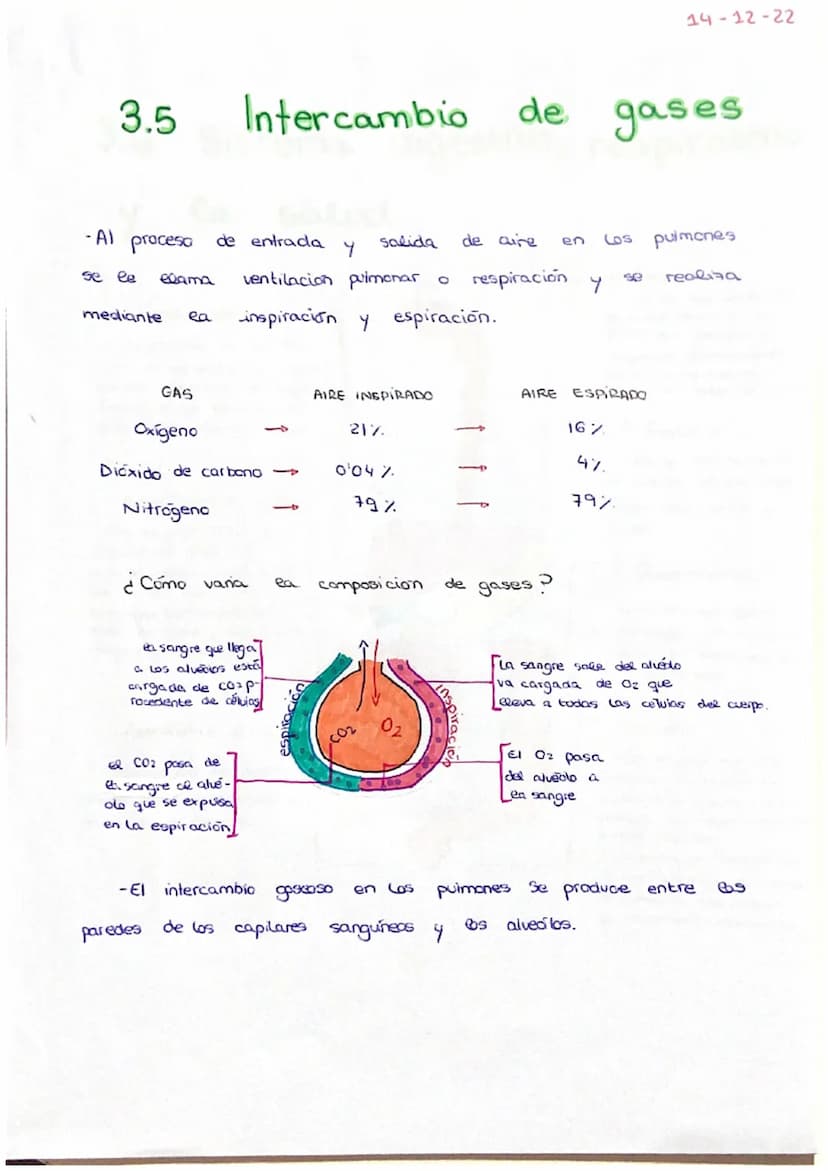 14-12-22
3.5 Intercambio de gases
-Al proceso de entrada y salida de aire en los pulmones
se le llama ventilacion pulmonar o respiración y se realiza
mediante la inspiración y espiración.
GAS AIRE INSPIRADO AIRE ESPIRADO
Oxígeno → 21% → 16%
Dióxido de carbono → 0'04% → 4%
Nitrógeno → 79% → 79%
¿Cómo varia la composicion de gases?
la sangre que llega
a los alvéolos está
cargada de CO2 p-
rocedente de células
el CO2 pasa de
la sangre al alvé-
olo que se expulsa
en la espiración
espiración
CO2
O2
inspiración
La sangre sale del alvéolo
va cargada de O2 que
lleva a todas las células del cuerpo.
El O2 pasa
del alvéolo a
la sangre
-El intercambio gaseoso en los pulmones se produce entre los
paredes de los capilares sanguíneos y los alveólos.